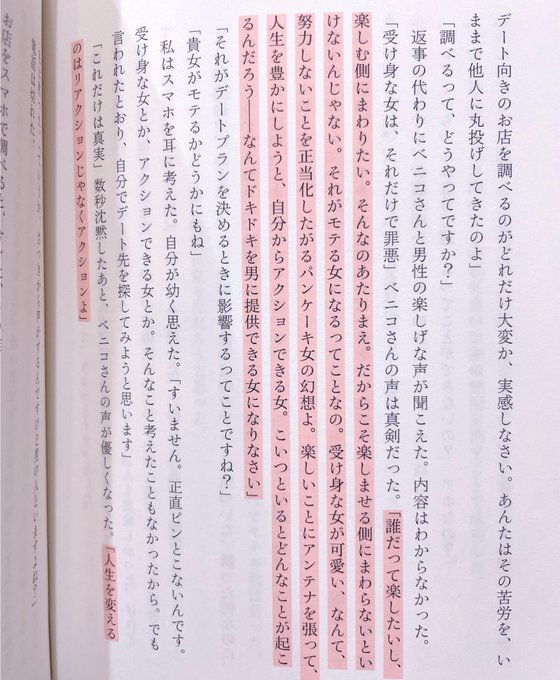 デート向きのお店を調べるのがどれだけ大変か、実感しなさい。あんたはその苦労を、い
ままで他人に丸投げしてきたのよ」
「調べるって、どうやってですか？」
返事の代わりにベニコさんと男性の楽しげな声が聞こえた。内容はわからなかった。
「受け身な女は、それだけで罪悪」ベニコさんの声は真剣だった。「誰だって楽したいし、
楽しむ側にまわりたい。そんなのあたりまえ。だからこそ楽しませる側にまわらないとい
けないんじゃない。それがモテる女になるってことなの。受け身な女が可愛い、なんて、
努力しないことを正当化したがるパンケーキ女の幻想よ。楽しいことにアンテナを張って、
人生を豊かにしようと、自分からアクションできる女。こいつといるとどんなことが起こ
るんだろう――なんてドキドキを男に提供できる女になりなさい」
「それがデートプランを決めるときに影響するってことですね？」
「貴女がモテるかどうかにもね」
私はスマホを耳に考えた。自分が幼く思えた。「すいません。正直ピンとこないんです。
受け身な女とか、アクションできる女とか。そんなこと考えたこともなかったから。でも
言われたとおり、自分でデート先を探してみようと思います」
「これだけは真実」数秒沈黙したあと、ベニコさんの声が優しくなった。「人生を変える
のはリアクションじゃなくアクションよ」
お店をスマホで調べると、